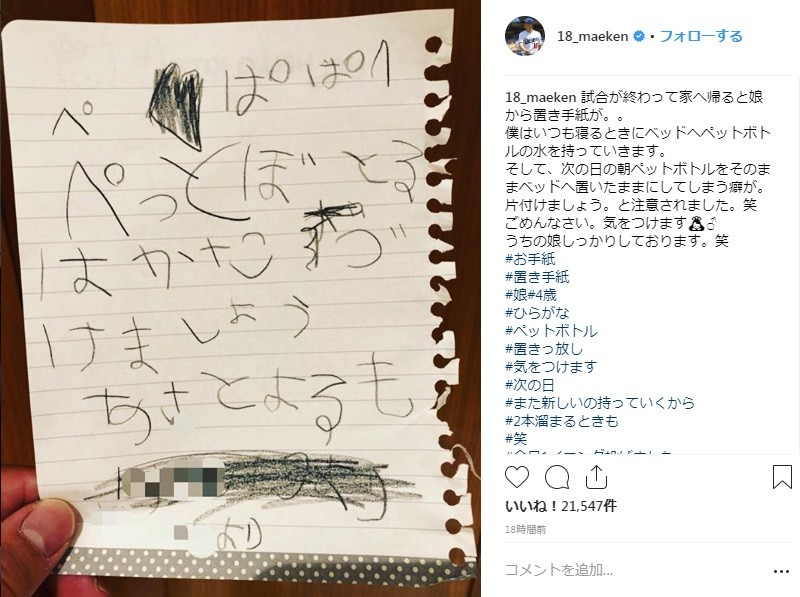 ぱぱへ
ぺ
ぺっとぼとる
はかたづ
けましょう
あさとよるも
より
18_maeken • フォローする
18_maeken 試合が終わって家へ帰ると娘
から置き手紙が。。
僕はいつも寝るときにベッドへペットボト
ルの水を持っていきます。
そして、次の日の朝ペットボトルをそのま
まベッドへ置いたままにしてしまう癖が。
片付けましょう。と注意されました。笑
ごめんなさい。気をつけます🙇♂
うちの娘しっかりしております。笑
#お手紙
#置き手紙
#娘#4歳
#ひらがな
#ペットボトル
#置きっ放し
#気をつけます
#次の日
#また新しいの持っていくから
#2本溜まるときも
#笑
いいね！21,547件
18時間前
コメントを追加...